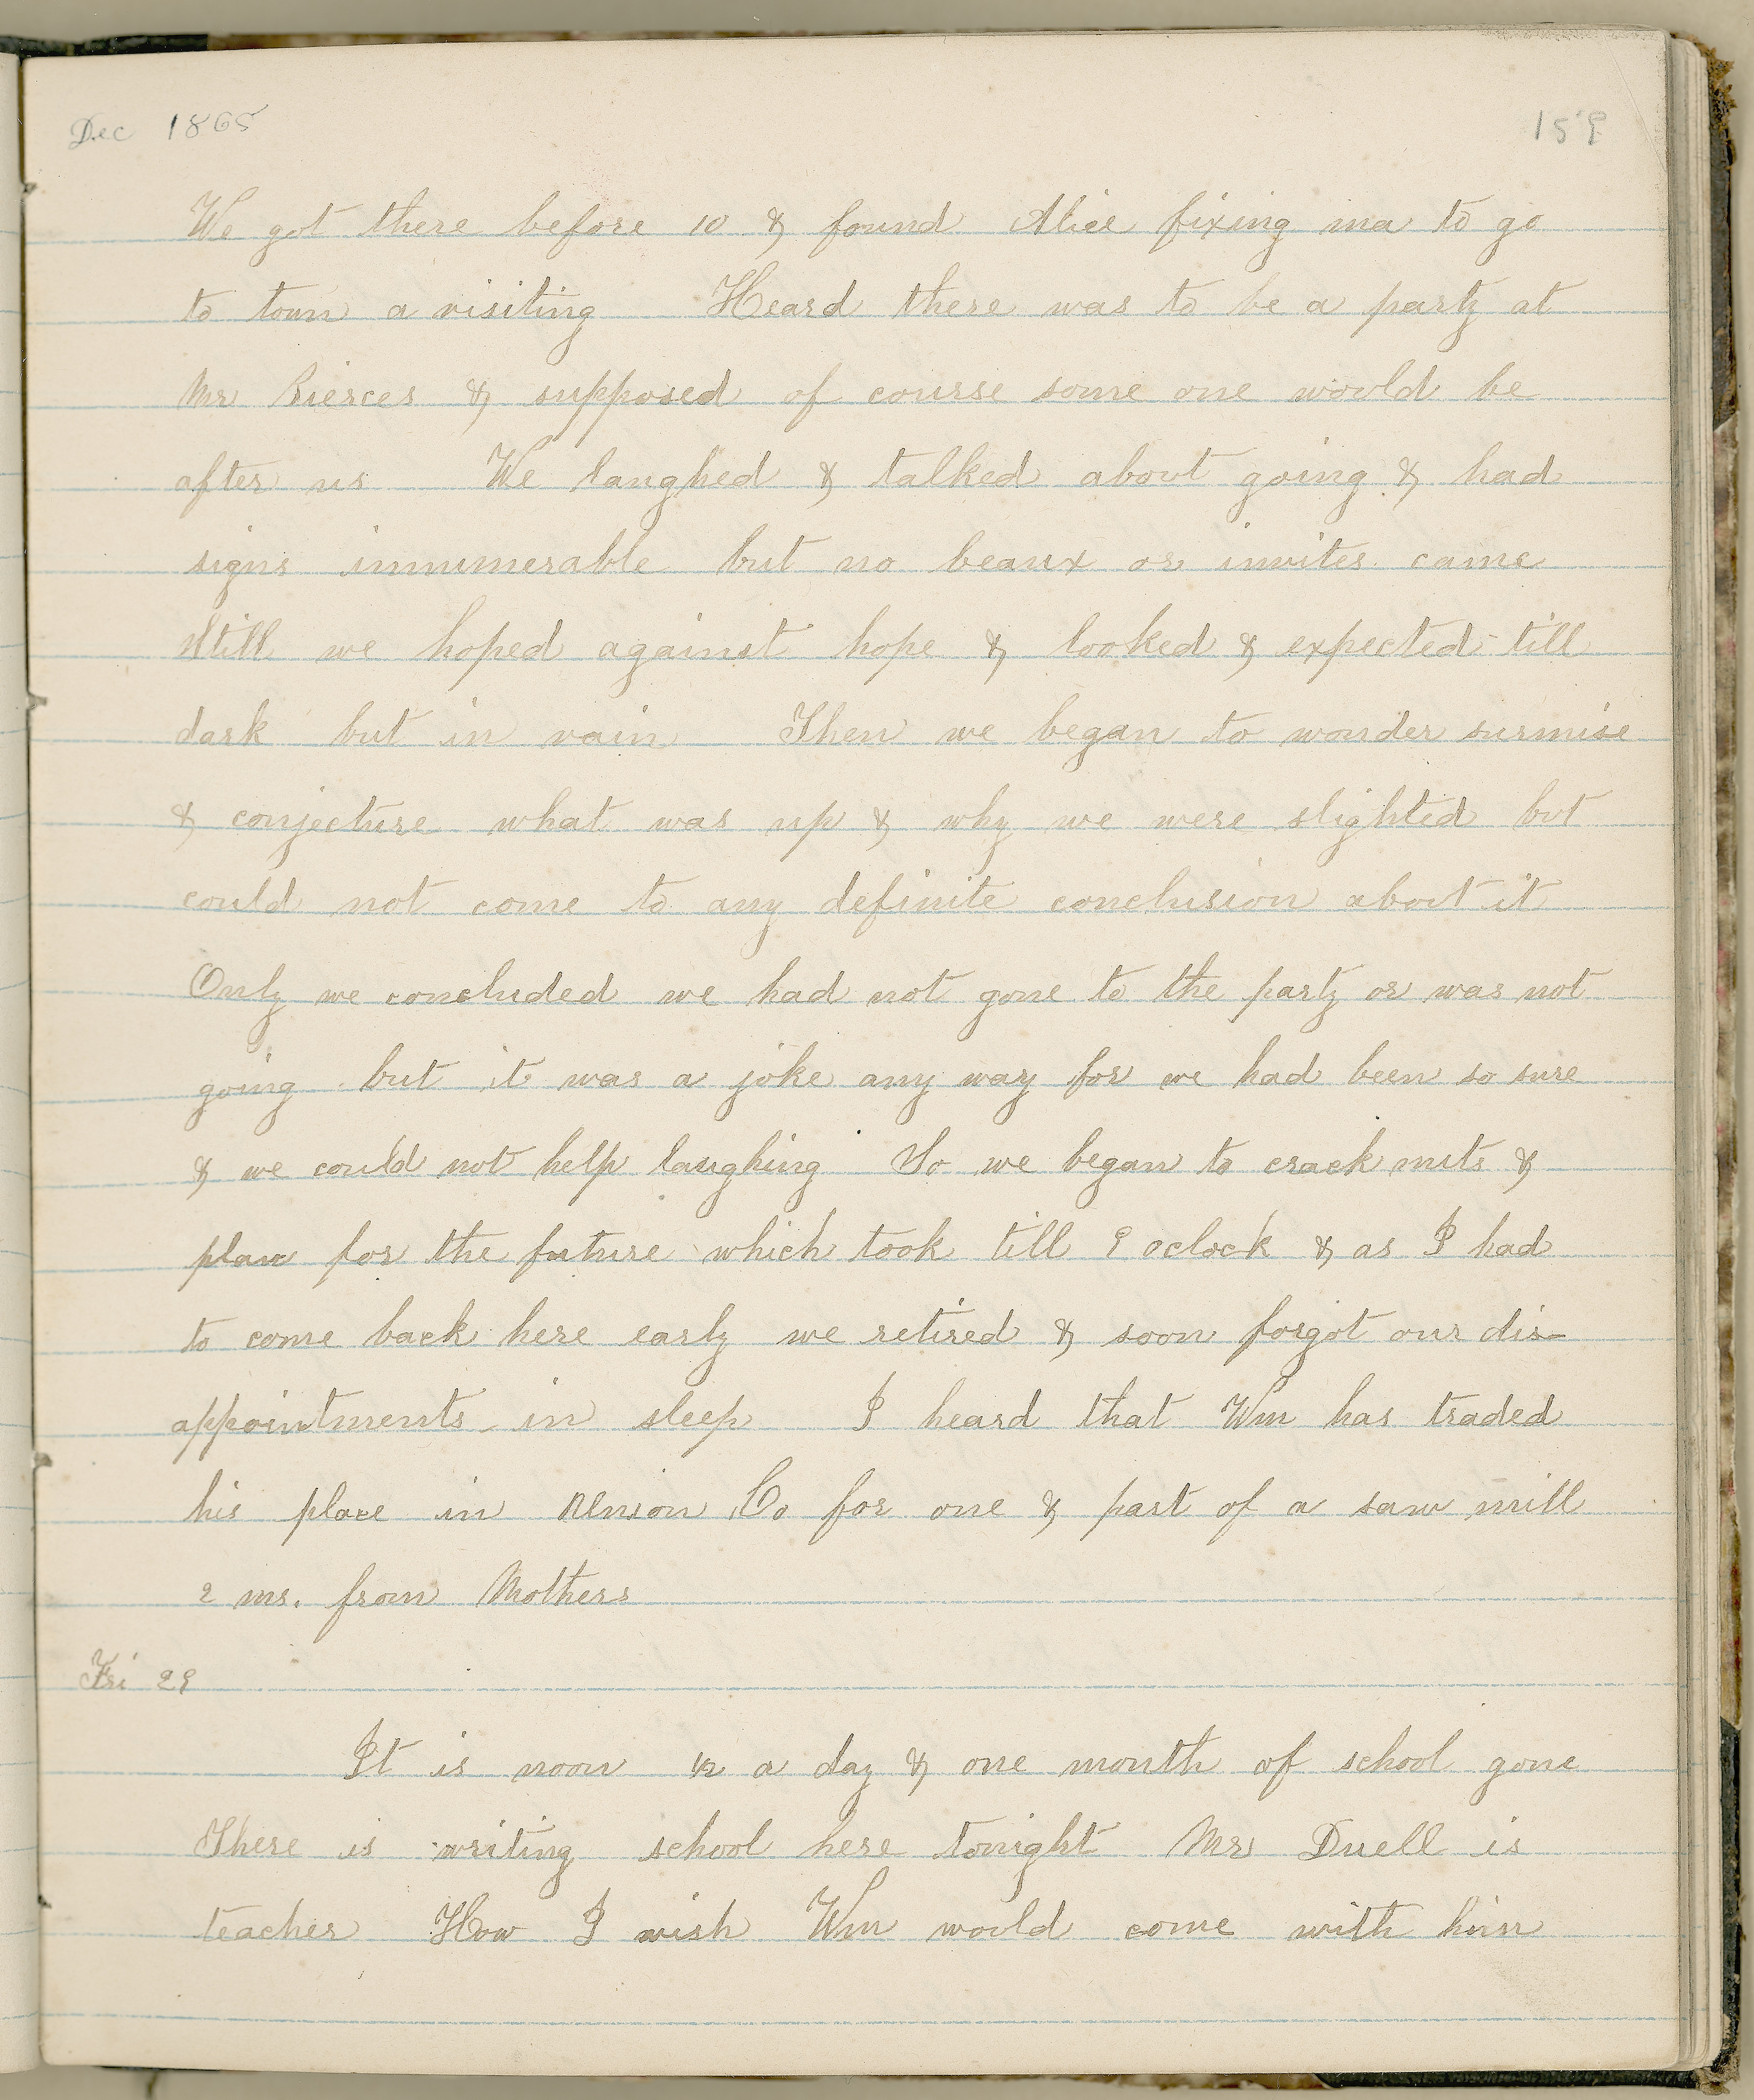 Dec 1865
159
We got there before 10 & found Alice fixing ma to go
to town a visiting Heard there was to be a party at
Mr Pierces & supposed of course some one would be
after us We laughed & talked about going & had
signs innumerable but no beaux or invites came
Still we hoped against hope & looked & expected till
dark but in vain Then we began to wonder surmise
& conjecture what was up & why we were slighted but
could not come to any definite conclusion about it
Only we concluded we had not gone to the party or was not
going but it was a joke any way for we had been so sure
& we could not help laughing So we began to crack nuts &
plan for the future which took till 9 oclock & as I had
to come back here early we retired & soon forgot our dis-
appointments in sleep I heard that Wm has traded
his place in Union Co for one & part of a saw mill
2 ms. from Mothers
Fri 29
It is noon 1/2 a day & one month of school gone
There is writing school here tonight Mr Duell is
teacher How I wish Wm would come with him